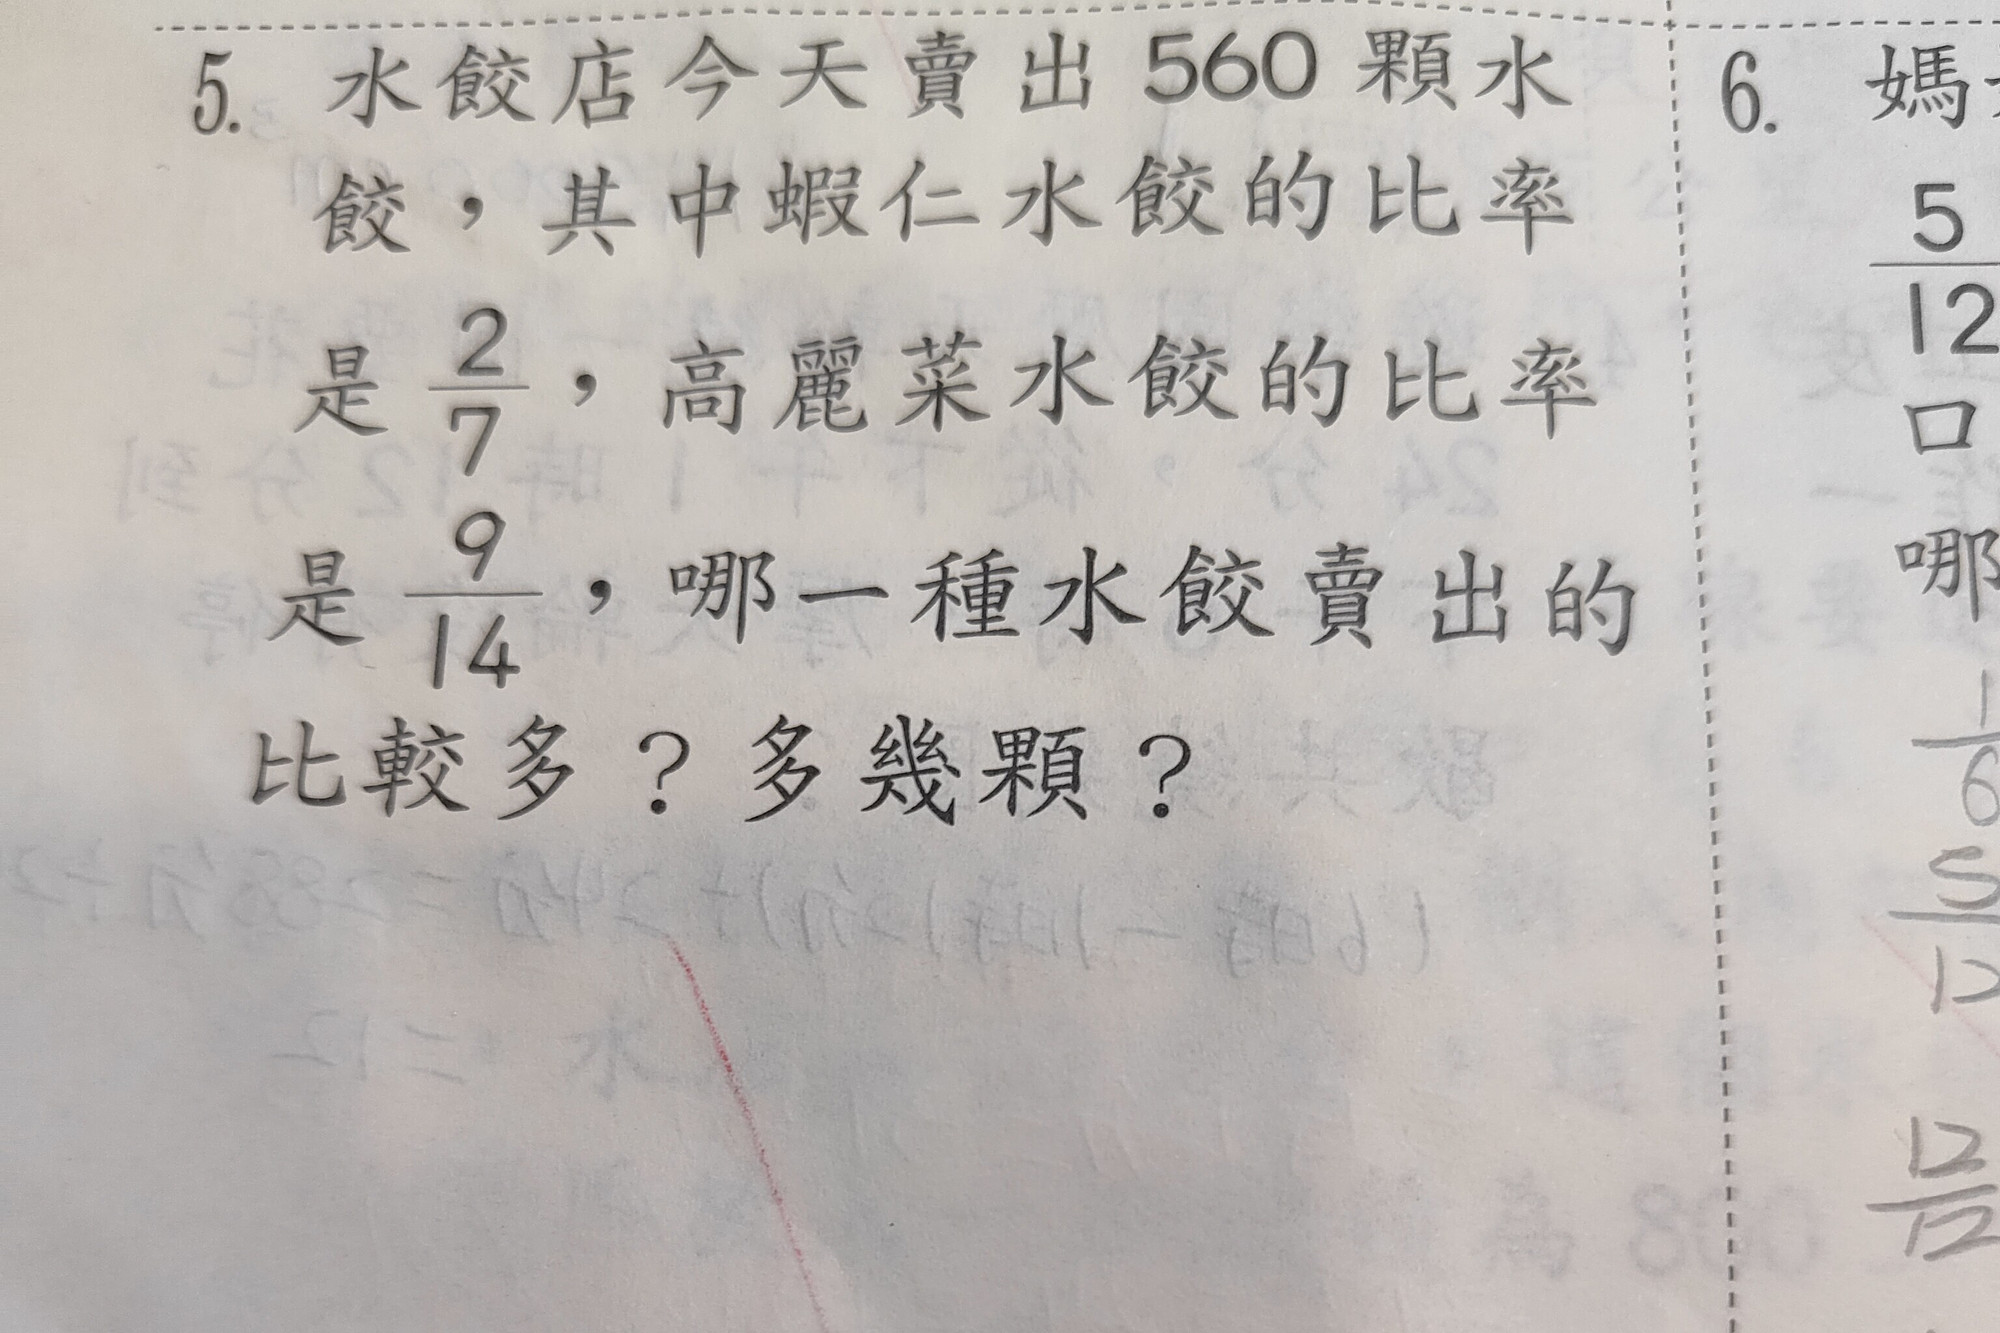 5. 水餃店今天賣出 560 顆水
餃，其中蝦仁水餃的比率
是 2/7，高麗菜水餃的比率
是 9/14，哪一種水餃賣出的
比較多？多幾顆？
6. 媽
5/12
口
哪
1/6
5/12
12/12